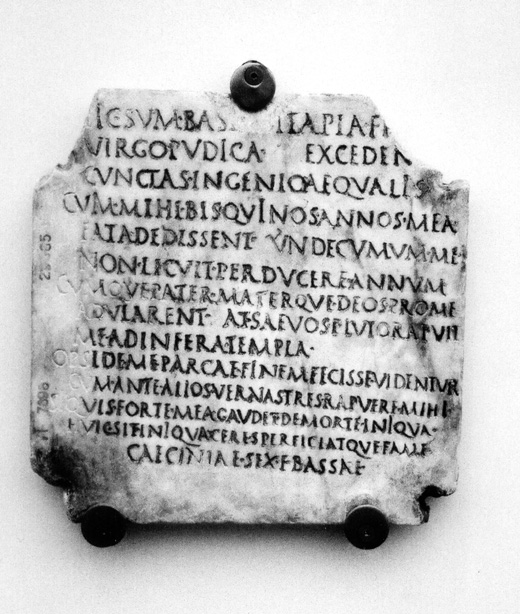 IC SVM·BAS ITA·PIA·FI
VIRGO·PVDICA· EXCEDEN
CVNCTAS·INGENIO·AEQVALIS
CVM·MIHI·BIS·QVINOS·ANNOS·MEA·
FATA·DEDISSENT· VNDECVMVM·ME
NON·LICVIT·PERDVCERE·ANNVM
CVMQVE·PATER·MATERQVE·DEOS·PRO·ME
ADVLARENT· AT·SAEVOS·PLVTO·RAPVIT
ME·AD·INFERA·TEMPLA·
SI·DE·ME·PARCAE·FINEM·FECISSE·VIDENTVR
CVM·ANTE·ALIOS·VERNAS·TRES·RAPVERE·MIHI·
QVIS·FORTE·MEA·GAVDET·DE·MORTE·INIQVA·
SIT·INIQVA·CERES·PERFICIATQVE·FAME
CAECINIAE·SEX·F·BASSAE